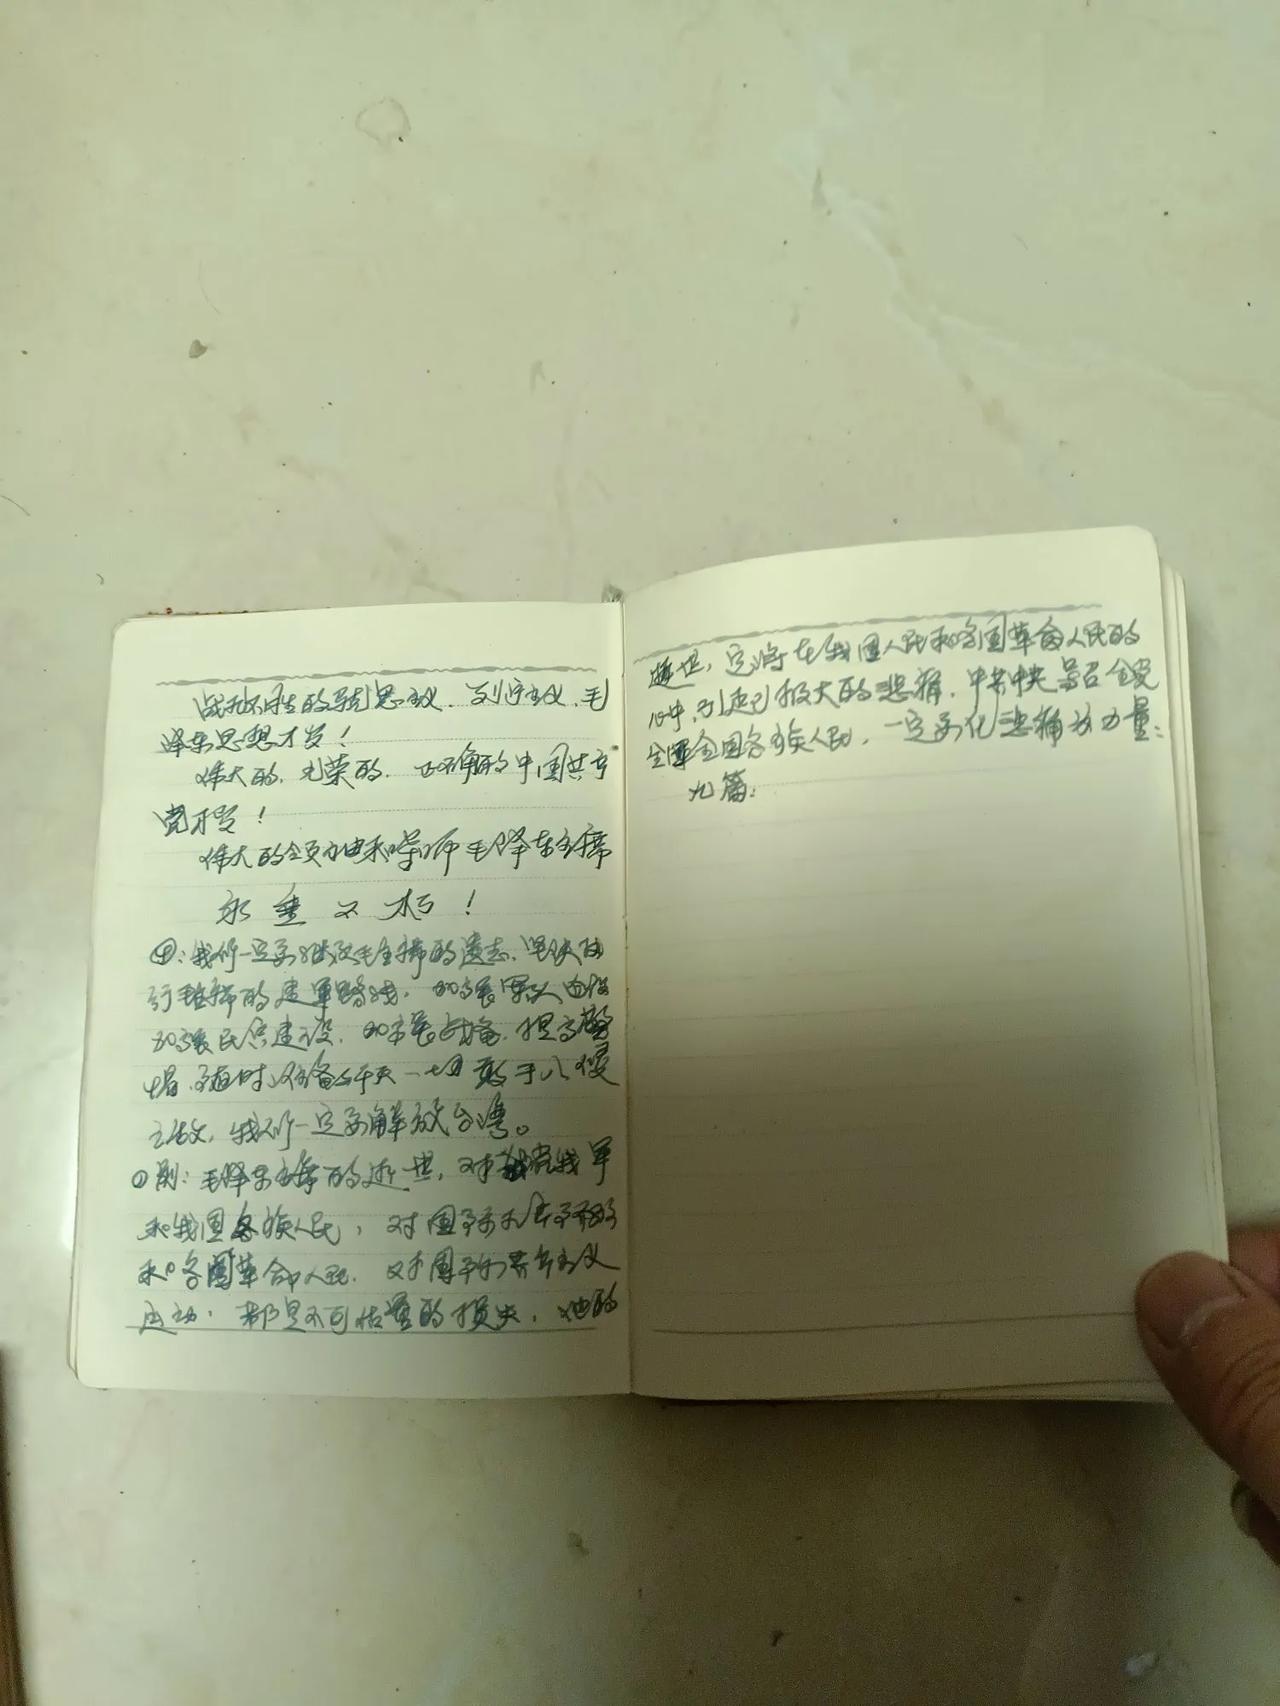 战无不胜的马克思主义、列宁主义、毛
泽东思想万岁！
伟大的、光荣的、正确的中国共产
党万岁！
伟大的领袖和导师毛泽东主席
永垂不朽！
④：我们一定要继承毛主席的遗志，坚决执
行毛主席的建军路线，加强军队建设
加强民兵建设，加强战备，提高警
惕，随时准备歼灭一切敢于入侵
之敌，我们一定要解放台湾。
①则：毛泽东主席的逝世，对我党我军
和我国各族人民，对国际无产阶级
和各国革命人民，对国际共产主义
运动，都是不可估量的损失，他的
逝世，定将在我国人民和各国革命人民的
心中，引起极大的悲痛，中共中央号召全党
全军全国各族人民，一定要化悲痛为力量：
九篇：